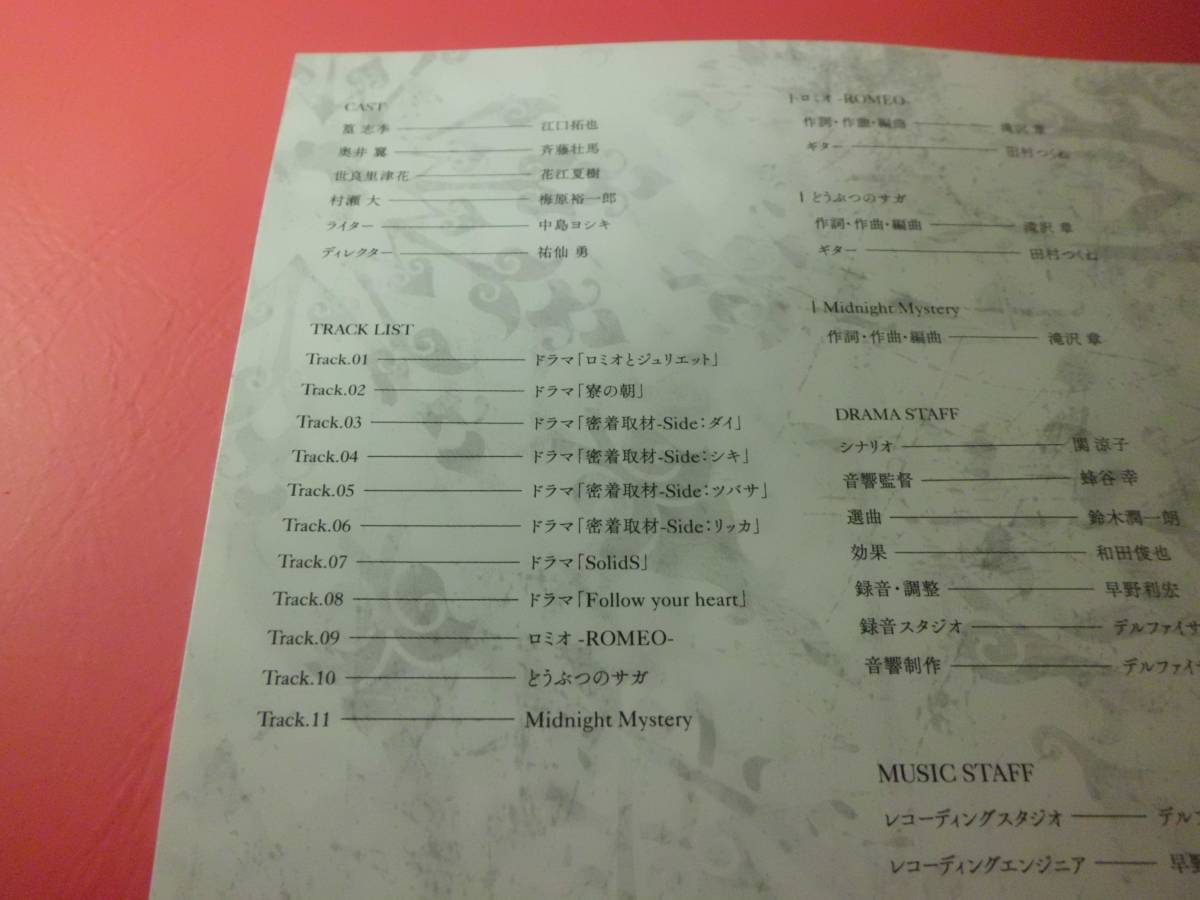 CAST
篁 志季 江口拓也
奥井 翼 斉藤壮馬
世良里津花 花江夏樹
村瀬 大 梅原裕一郎
ライター 中島ヨシキ
ディレクター 祐仙 勇
TRACK LIST
Track.01 ドラマ「ロミオとジュリエット」
Track.02 ドラマ「寮の朝」
Track.03 ドラマ「密着取材-Side:ダイ」
Track.04 ドラマ「密着取材-Side:シキ」
Track.05 ドラマ「密着取材-Side:ツバサ」
Track.06 ドラマ「密着取材-Side:リッカ」
Track.07 ドラマ「SolidS」
Track.08 ドラマ「Follow your heart」
Track.09 ロミオ -ROMEO-
Track.10 どうぶつのサガ
Track.11 Midnight Mystery
ロミオ -ROMEO-
作詞・作曲・編曲 滝沢 章
ギター 田村つくね
どうぶつのサガ
作詞・作曲・編曲 滝沢 章
ギター 田村つくね
Midnight Mystery
作詞・作曲・編曲 滝沢 章
DRAMA STAFF
シナリオ 関 涼子
音響監督 蜂谷 幸
選曲 鈴木潤一朗
効果 和田俊也
録音・調整 早野利宏
録音スタジオ デルファイサ
音響制作 デルファイサ
MUSIC STAFF
レコーディングスタジオ デル
レコーディングエンジニア 早